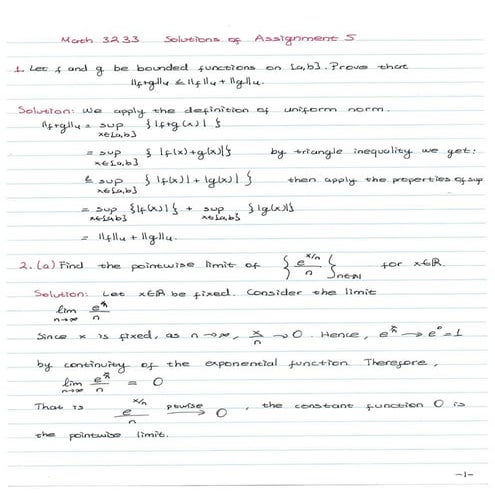 Math 3233 Solutions of Assignment 5
1. Let f and g be bounded functions on [a,b]. Prove that
||f+g||u ≤ ||f||u + ||g||u.
Solution: We apply the definition of uniform norm.
||f+g||u = sup x∈[a,b] { |f+g(x)| }
= sup x∈[a,b] { |f(x)+g(x)| } by triangle inequality we get:
≤ sup x∈[a,b] { |f(x)| + |g(x)| } then apply the properties of sup
= sup x∈[a,b] { |f(x)| } + sup x∈[a,b] { |g(x)| }
= ||f||u + ||g||u.
2. (a) Find the pointwise limit of { e^{x/n} / n } n∈N for x∈R.
Solution: Let x∈R be fixed. Consider the limit
lim n→∞ e^{x/n} / n
Since x is fixed, as n→∞, x/n → 0. Hence, e^{x/n} → e^0 = 1
by continuity of the exponential function. Therefore,
lim n→∞ e^{x/n} / n = 0
That is e^{x/n} / n ptwise → 0, the constant function 0 is
the pointwise limit.
-1-